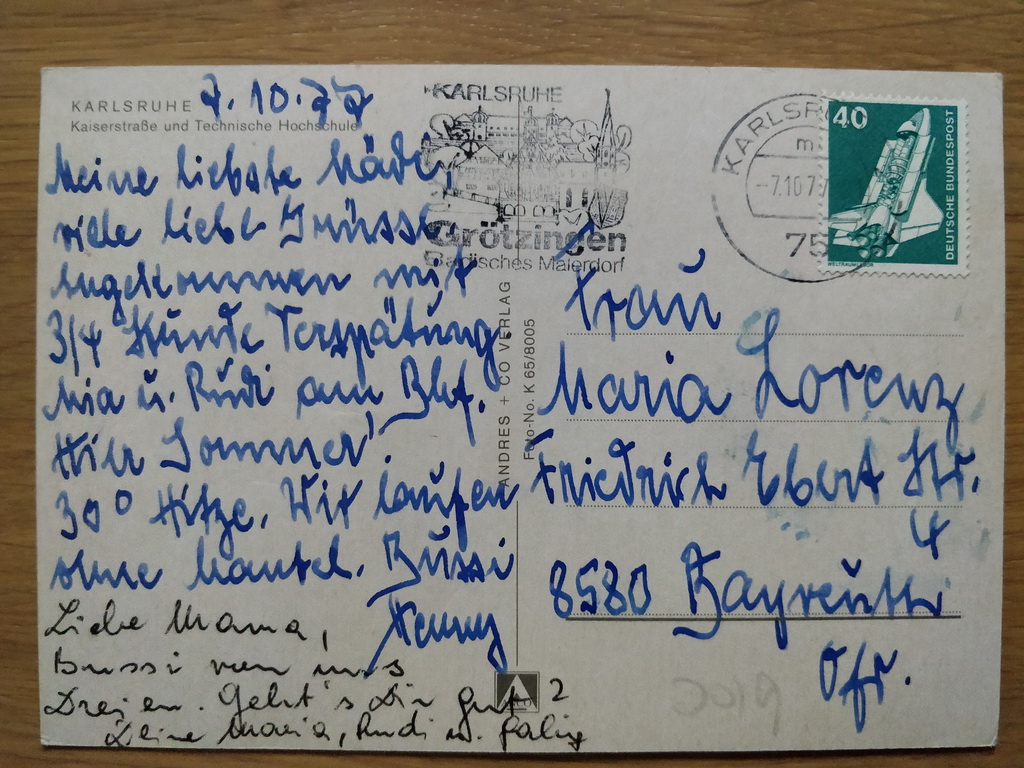 KARLSRUHE 7.10.77
Kaiserstraße und Technische Hochschule
Meine liebste
viele liebe Grüsse
Angekommen mit
3/4 Stunde Verspätung
Mia u. Rudi am Bhf.
Hier Sommer!
30° Hitze. Wir laufen
ohne Mantel. Bussi
Liebe Mama,
Bussi von uns
Dreien. Geht's Dir gut?
Deine Maria, Rudi u.
ANDRES + CO VERLAG
Foto-No. K 65/8005
KARLSRUHE
Grötzingen
Badisches Malerdorf
KARLSRU
m
-7.10.7
75
40
DEUTSCHE BUNDESPOST
WELTRAUMLABOR
Frau
Maria Lorenz
Friedrich Ebert Str.
4
8580 Bayreuth
Ofr.